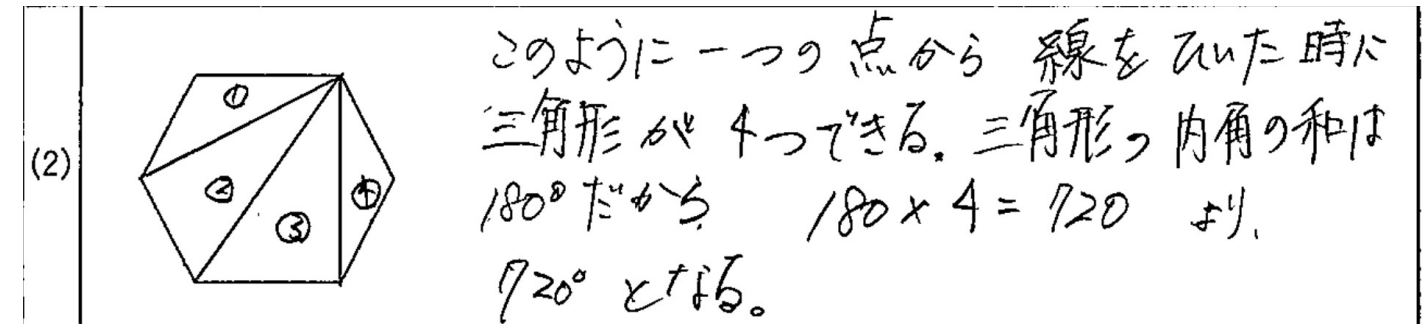 (2)
① ② ③ ④
このように一つの点から 線をひいた時に
三角形が4つできる。三角形の内角の和は
180°だから 180×4=720 より、
720°となる。